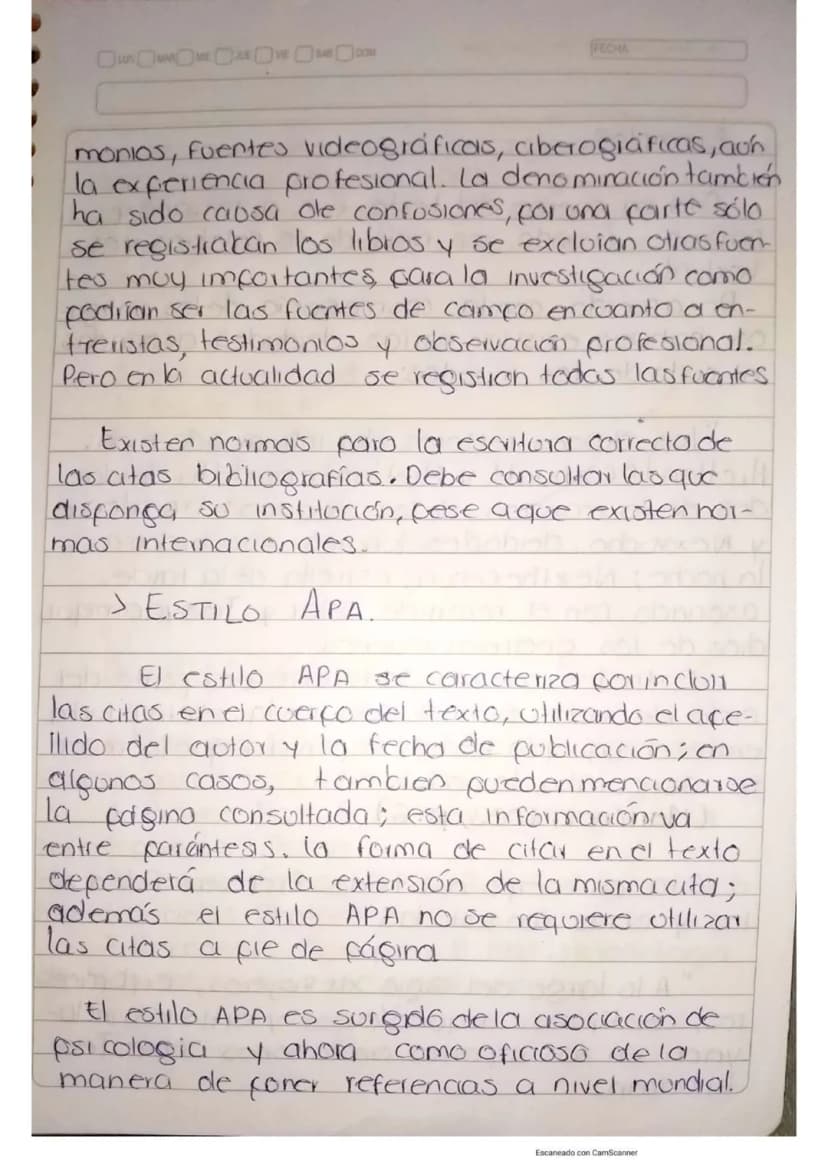 LUN MAR MIE JUE VIE SAB DOM
FECHA
monios, fuentes videográficas, ciberográficas, aún
la experiencia profesional. La denominación también
ha sido causa de confusiones, por una parte sólo
se registraban los libros y se excluían otras fuen-
tes muy importantes para la investigación como
podrían ser las fuentes de campo en cuanto a en-
trevistas, testimonios y observación profesional.
Pero en la actualidad se registran todas las fuentes
Existen normas para la escritura correcta de
las citas bibliografías. Debe consultar las que
disponga su institución, pese a que existen nor-
mas internacionales.
> ESTILO APA.
El estilo APA se caracteriza por incluir
las citas en el cuerpo del texto, utilizando el ape-
llido del autor y la fecha de publicación; en
algunos casos, tambien pueden mencionarse
la página consultada; esta información va
entre paréntesis. la forma de citar en el texto
dependerá de la extensión de la misma cita;
además el estilo APA no se requiere utilizar
las citas a pie de página
El estilo APA es surgido de la asociación de
psicologia y ahora como oficiosa de la
manera de poner referencias a nivel mundial.
Escaneado con CamScanner